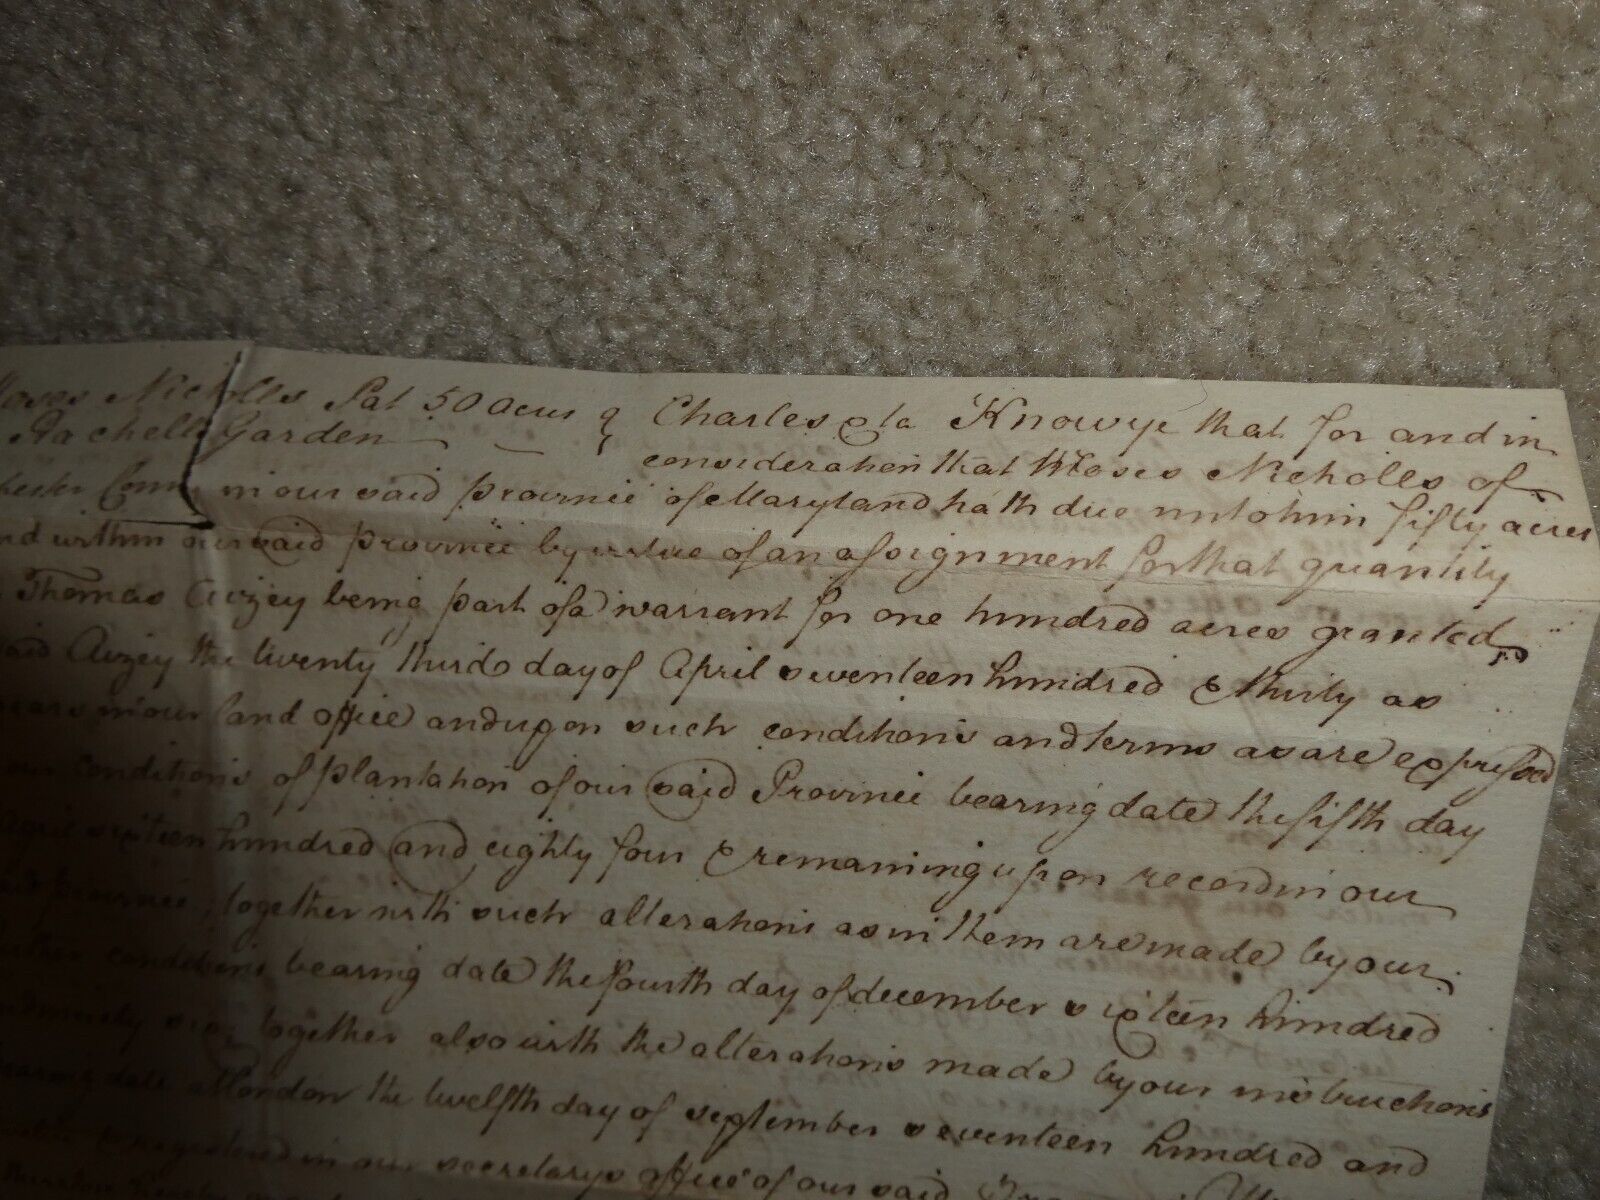 Moses Nicholls Pat 50 acres } Charles &ta Know ye that for and in
Rachells Garden consideration that Moses Nicholls of
chester County in our said province of Maryland hath due unto him fifty acres
nd within our said province by virtue of an assignment for that quantity
Thomas Avzey being part of a warrant for one hundred acres granted
said Avzey the twenty third day of April seventeen hundred & thirty as
pears in our land office and upon such conditions and terms as are expressed
our conditions of plantation of our said Province bearing date the fifth day
April sixteen hundred and eighty four & remaining upon record in our
said province, together with such alterations as in them are made by our
conditions bearing date the fourth day of december sixteen hundred
six, together also with the alterations made by our instructions
bearing date at London the twelfth day of september seventeen hundred and
registered in our secretarys office of our said